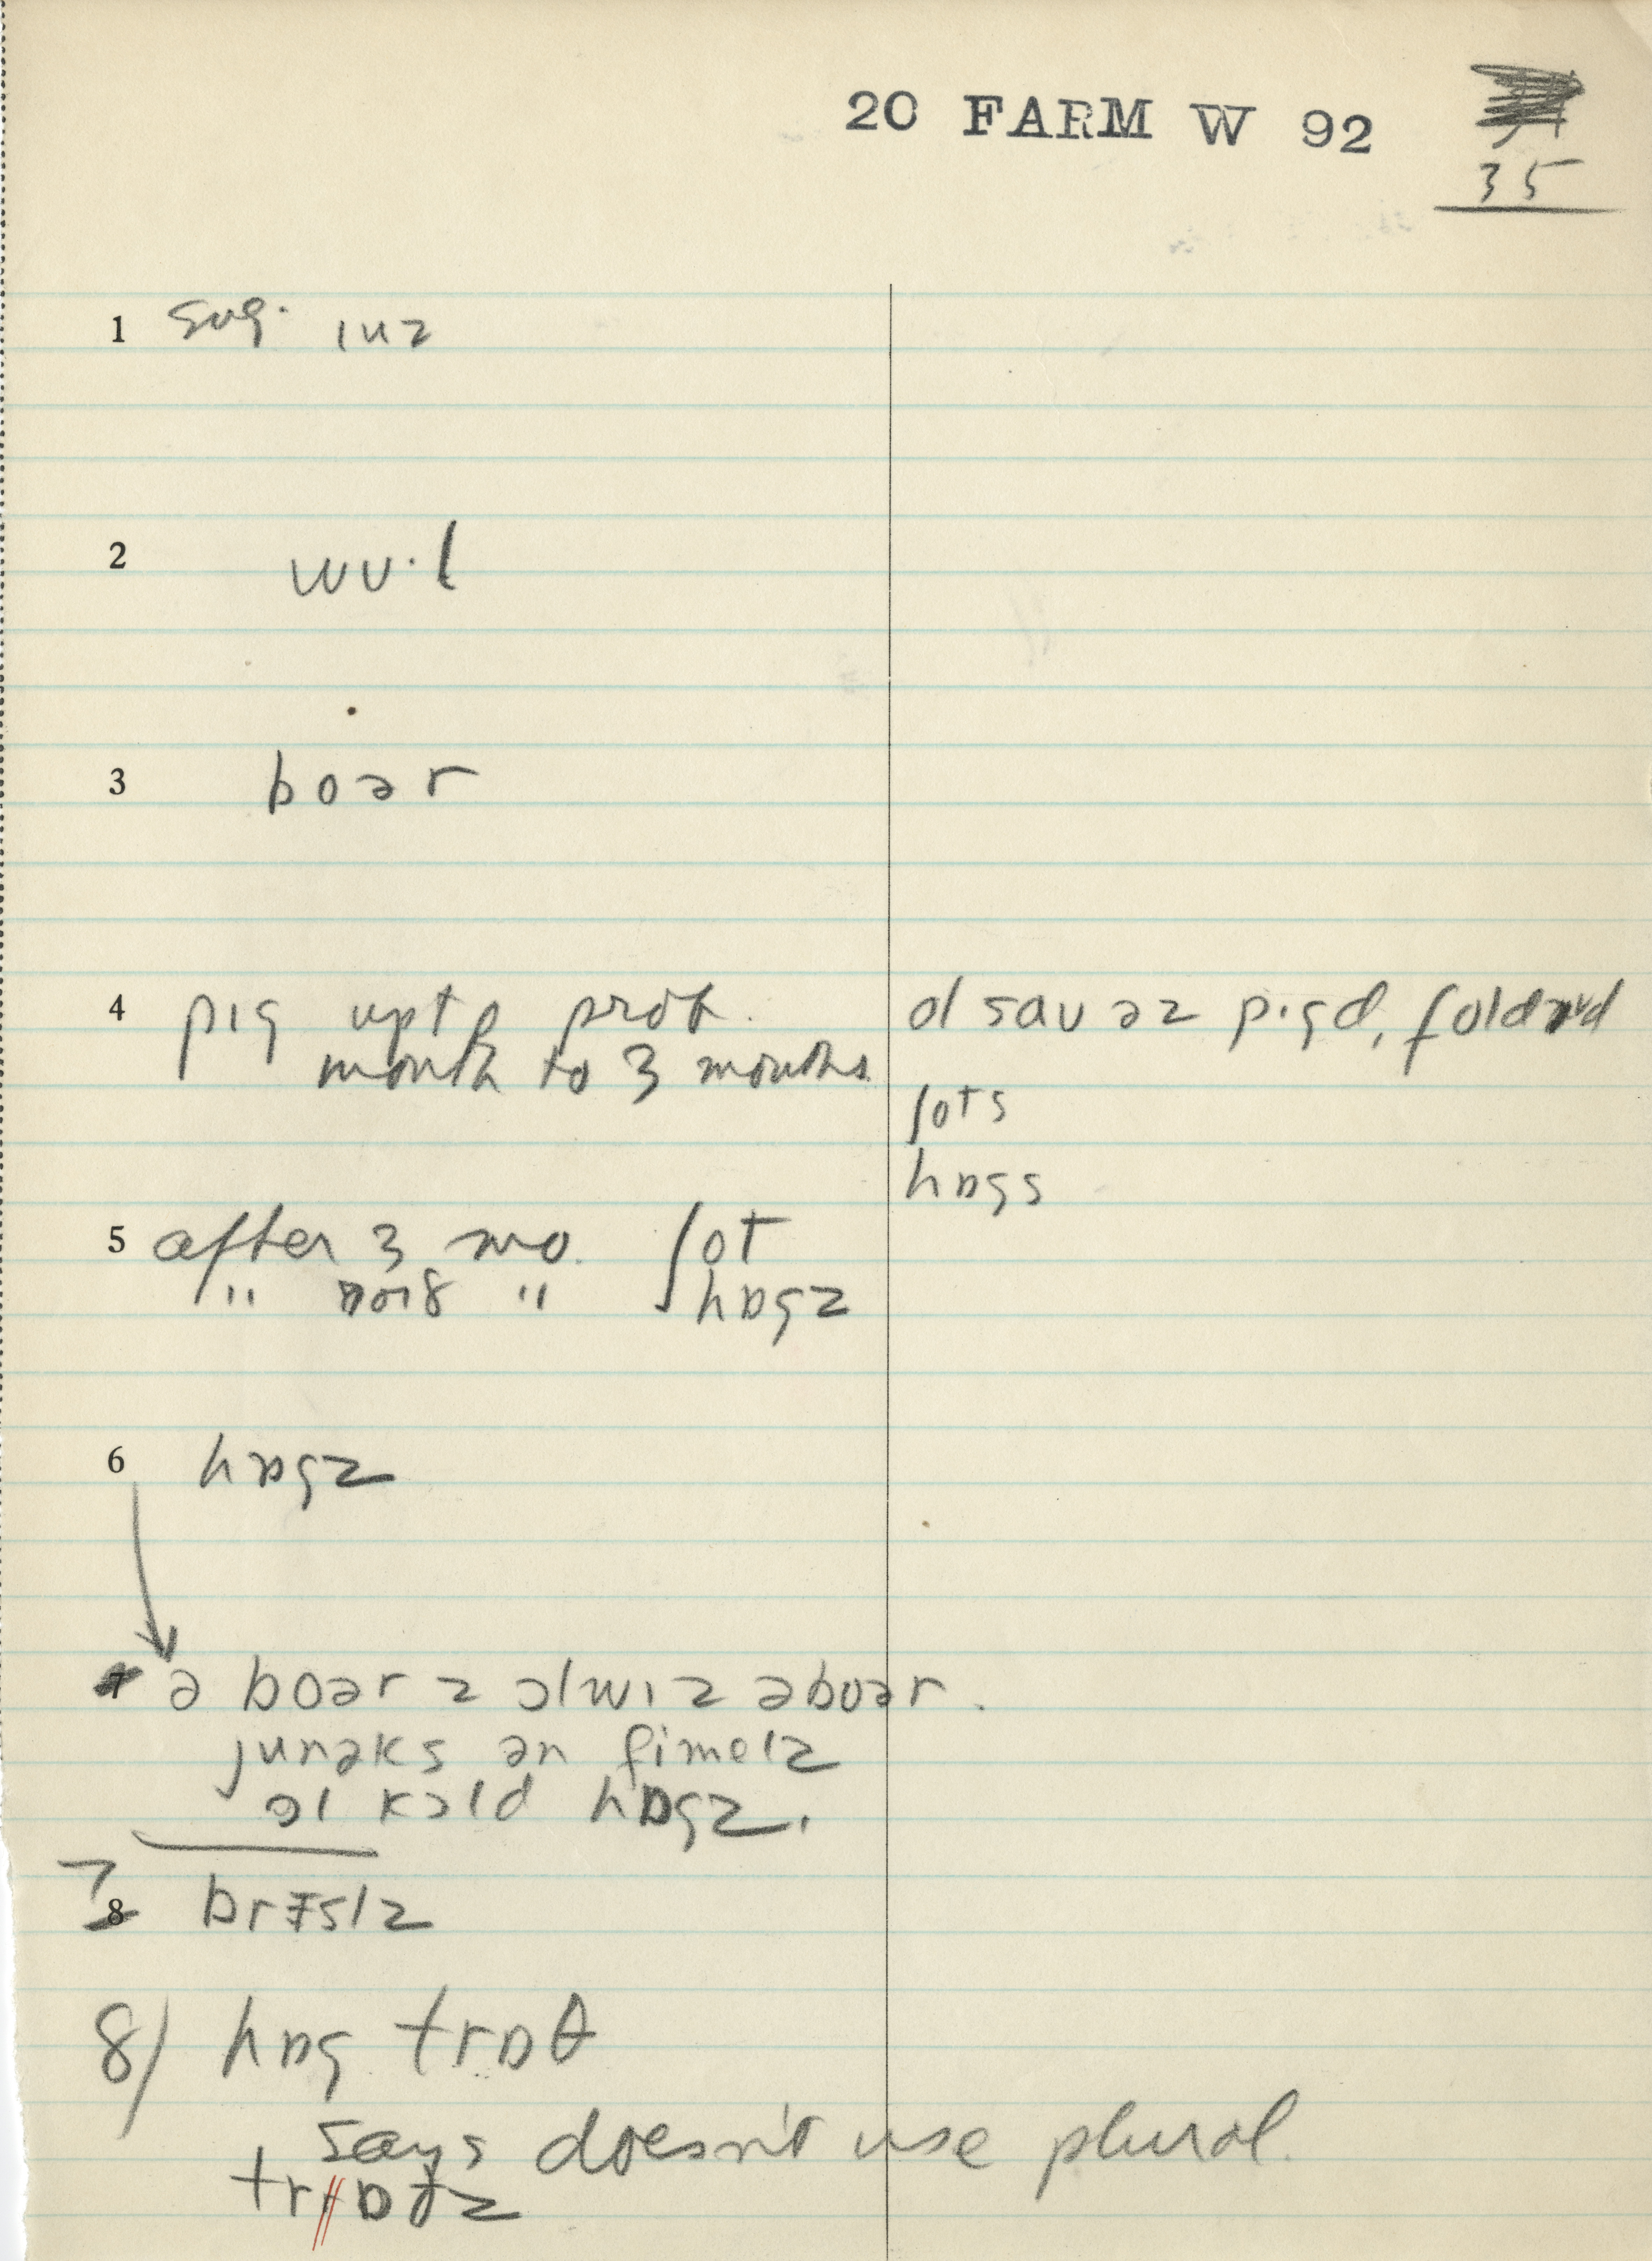 20 FARM W 92
35
1 sug. ıuz
2 wʊ·l
3 boər
4 pıg upto prob.
month to 3 months
ʃots
hɒgs
5 after 3 mo. ʃot
" " hɒgz
6 hɒgz
7 ə boər z ɔlwız əboər.
junəks ən fimelz
ɔl kɔld hɒgz.
7 8 brɪslz
8) hɒg trɒθ
says doesn't use plural.
trɒðz